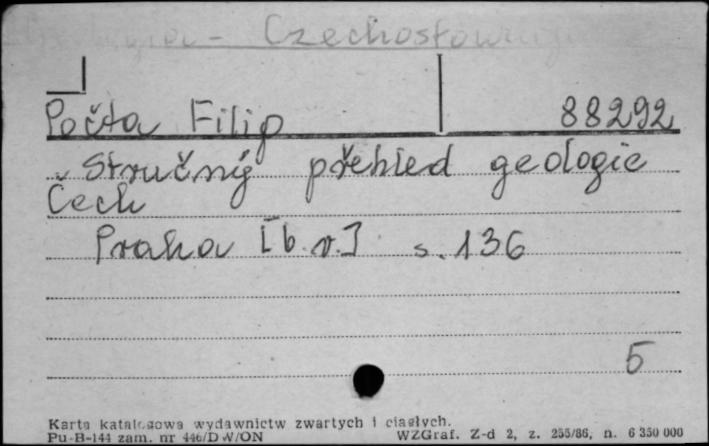 Geologia - Czechosłowacja
Počta Filip 88292
Stručný přehled geologie
Čech
Praha [b.r.] s. 136
5
Karta katalogowa wydawnictw zwartych i ciągłych.
Pu-B-144 zam. nr 446/D W/ON WZGraf. Z-d 2, z. 255/86, n. 6 350 000